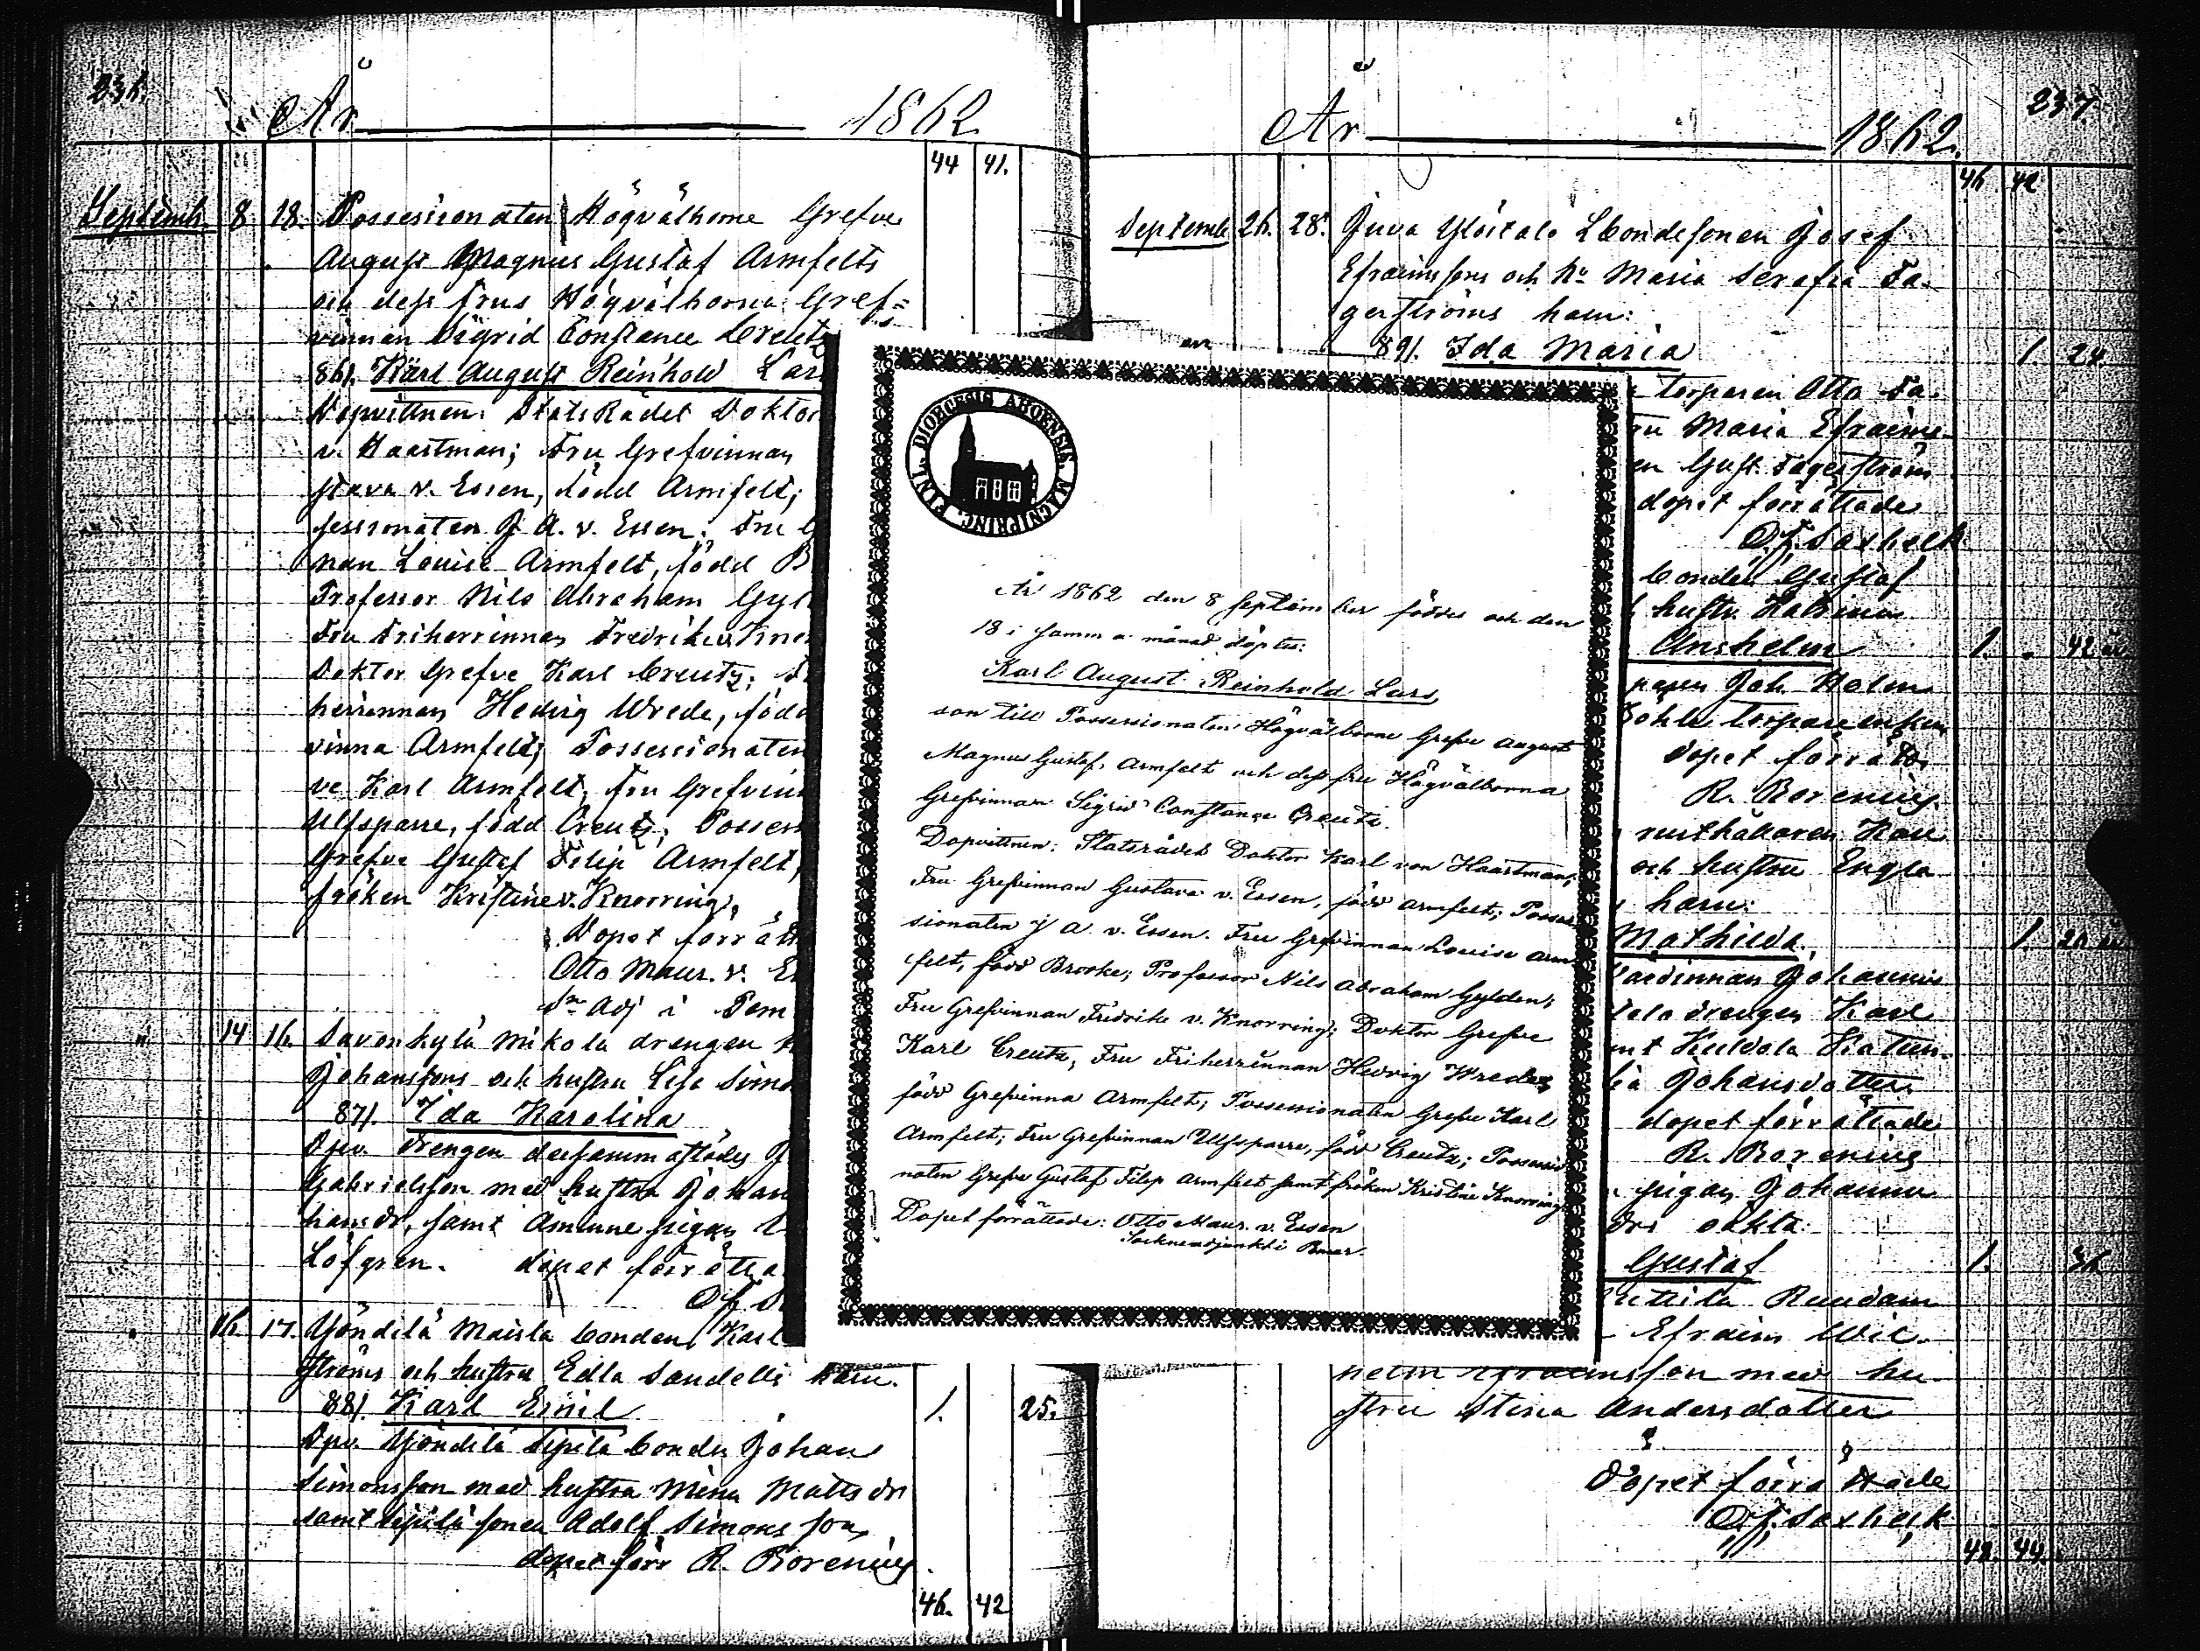 236.
År 1862
44 41.
Septemb. 8. 18. Possessionaten Högvälborne Grefve
August Magnus Gustaf Armfelts
och dess frus Högvälborna Gref=
vinnan Sigrid Constance Creutz
86). Karl August Reinhold Lars
Dopvittnen: Statsrådet Doktor
v. Haartman; Fru Grefvinnan
stava v. Essen, född Armfelt;
sessionaten J. A. v. Essen; Fru G
nan Louise Armfelt, född B
Professor Nils Abraham Gyl
Fru Friherrinnan Fredrika Kno
Doktor Grefve Karl Creutz; F
herrinnan Hedvig Wrede, född
vinna Armfelt; Possessionaten
ve Karl Armfelt, Fru Grefvin
Ulfsparre, född Creutz; Possess
Grefve Gustaf Filip Armfelt,
fröken Kristine v. Knorring,
Dopet förrätt
Otto Maur. v. Es
Sn Adj i Pem
14 16. Savonkylä Mikola drengen
Johanssons och hustru Lisa Simo
87). Ida Karolina
Dpv. drengen dersammastädes J
Gabrielsson med hustru Johan
hansdr, samt Åminne pigan
Löfgren. dopet förrätta
16. 17. Yöndilä Maisla bonden Karl
ströms och hustru Edla Sandells barn.
88). Karl Emil 1. 25.
Dpv. Yöndilä Sipilä bonden Johan
Simonsson med hustru Mina Matts dr
samt Sipilä sonen Adolf Simons son,
dopet förr R. Borenius
46. 42
237.
År 1862.
46 42
Septemb. 26. 28. Juva Ylöstalo Lbondesonen Josef
Efraimssons och hu Maria Serafia Fa-
gerströms barn:
89). Ida Maria 1 24
torparen Otto Fa-
ru Maria Efraims-
en Gust. Fagerström
dopet förrättade
O.F. Saxbeck
bonden Gustaf
hustr. Katrina
Anshelm 1. 42
paren Joh. Holm
torpareenkan
dopet förrätt.
R. Borenius.
rusthållaren Karl
och hustru Engla
barn:
Mathilda 1. 26
värdinnan Johanna
talo drengen Karl
mt Kuldala Katari-
ia Johansdotter
dopet förrättade
R. Borenius
pigan Johanna
drs oäkta:
Gustaf 1. 36
Ruudam
Efraim Wil-
helm Efraimsson med hu-
stru Stina Andersdotter
Dopet förrättade
O.F. Saxbeck
48. 44.
FINL. DIOECESIS ABOENSIS. MAGNIPRINC.
År 1862 den 8 September föddes och den
18 i samma månad döptes:
Karl August Reinhold Lars,
son till Possessionaten Högvälborne Grefve August
Magnus Gustaf Armfelt och dess fru Högvälborna
Grefvinnan Sigrid Constance Creutz.
Dopvittnen: Statsrådet Doktor Karl von Haartman;
Fru Grefvinnan Gustava v. Essen, född Armfelt; Posses
sionaten J A. v. Essen. Fru Grefvinnan Louise Arm
felt, född Brooke; Professor Nils Abraham Gylden;
Fru Grefvinnan Fredrika v. Knorring; Doktor Grefve
Karl Creutz; Fru Friherrinnan Hedvig Wrede,
född Grefvinna Armfelt; Possessionaten Grefve Karl
Armfelt; Fru Grefvinnan Ulfsparre, född Creutz; Possessio
naten Grefve Gustaf Filip Armfelt samt fröken Kristine Knorring
Dopet förrättade: Otto Maur. v. Essen
Sockneadjunkt i Pemar.